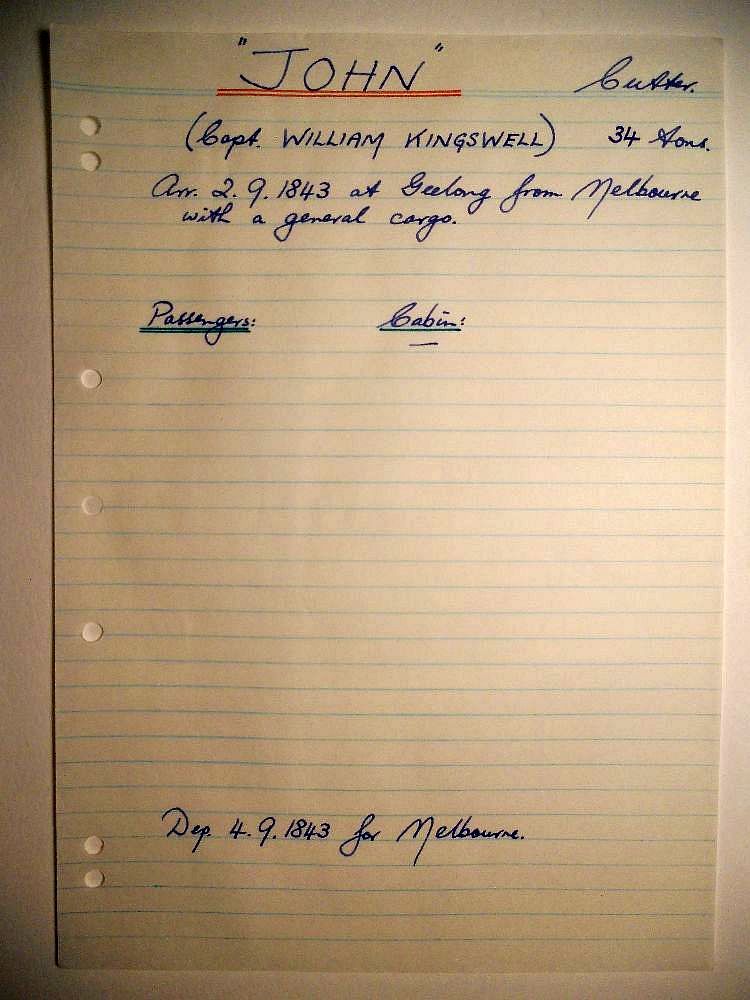 "JOHN" Cutter.
(Capt. WILLIAM KINGSWELL) 34 tons.
Arr. 2.9.1843 at Geelong from Melbourne
with a general cargo.
Passengers: Cabin:
—
Dep. 4.9.1843 for Melbourne.